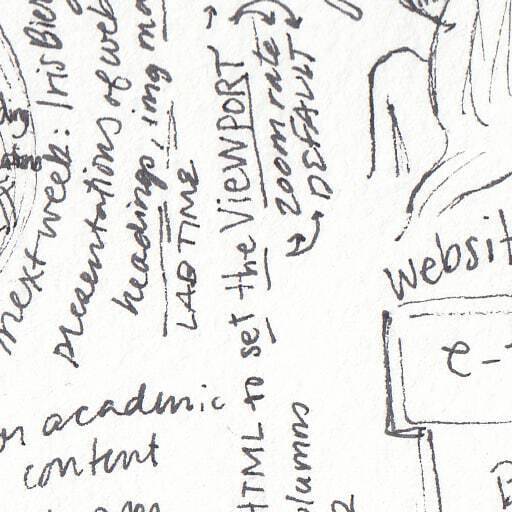 next week: Iris Bier
presentations of web
headings, img ma
LAB TIME
HTML to set the VIEWPORT
zoom rate
DEFAULT
olumns
on academic
content
websit
e-